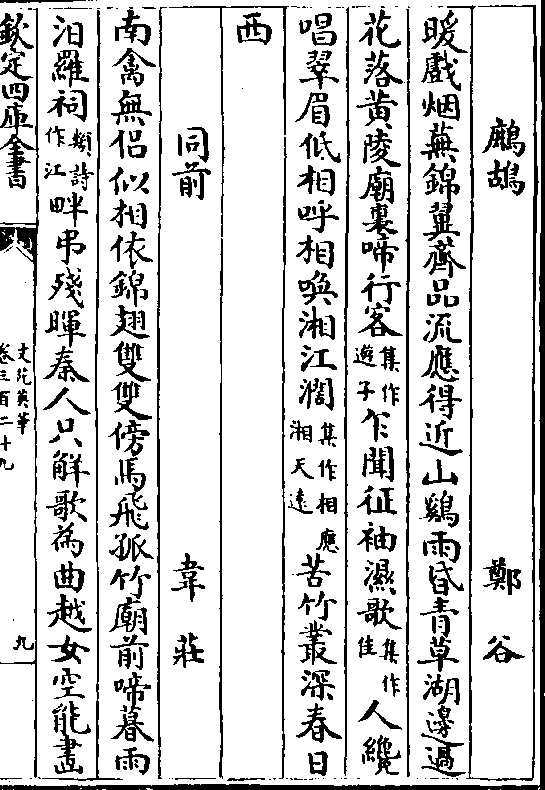 鷓鴣　鄭谷
暖戲烟蕪錦翼齊品流應得近山鷄雨昏青草湖邊過
花落黄陵廟裏啼行客集作遊子乍聞征袖濕歌集作佳人纔
唱翠眉低相呼相喚湘江濶集作相應湘天遠苦竹叢深春日
西
同前　韋莊
南禽無侣似相依錦翅雙雙傍馬飛孤竹廟前啼暮雨
汨羅祠類詩作江畔弔殘暉秦人只解歌為曲越女空能畫
欽定四庫全書
文苑英華
卷三百二十九
九